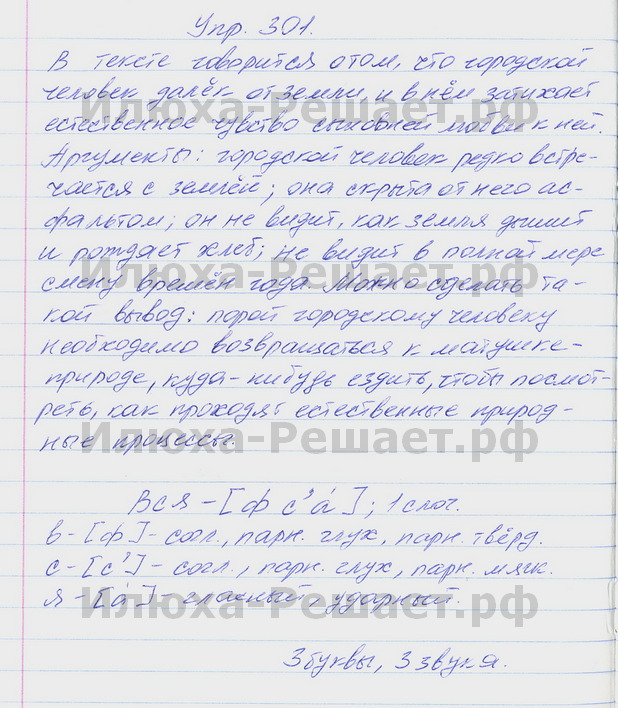 Упр. 301.
В тексте говорится о том, что городской
человек далёк от земли, и в нём затихает
естественное чувство сыновней любви к ней.
Аргументы: городской человек редко встре-
чается с землёй; она скрыта от него ас-
фальтом; он не видит, как земля дышит
и рождает хлеб; не видит в полной мере
смену времён года. Можно сделать та-
кой вывод: порой городскому человеку
необходимо возвращаться к матушке-
природе, куда-нибудь ездить, чтобы посмот-
реть, как проходят естественные природ-
ные процессы.
Вся - [ф с' а́]; 1 слог.
в - [ф] - согл., парн. глух, парн. твёрд.
с - [с'] - согл., парн. глух, парн. мягк.
я - [а́] - гласный, ударный.
3 буквы, 3 звука.
Илюха-Решает.рф
Илюха-Решает.рф
Илюха-Решает.рф
Илюха-Решает.рф